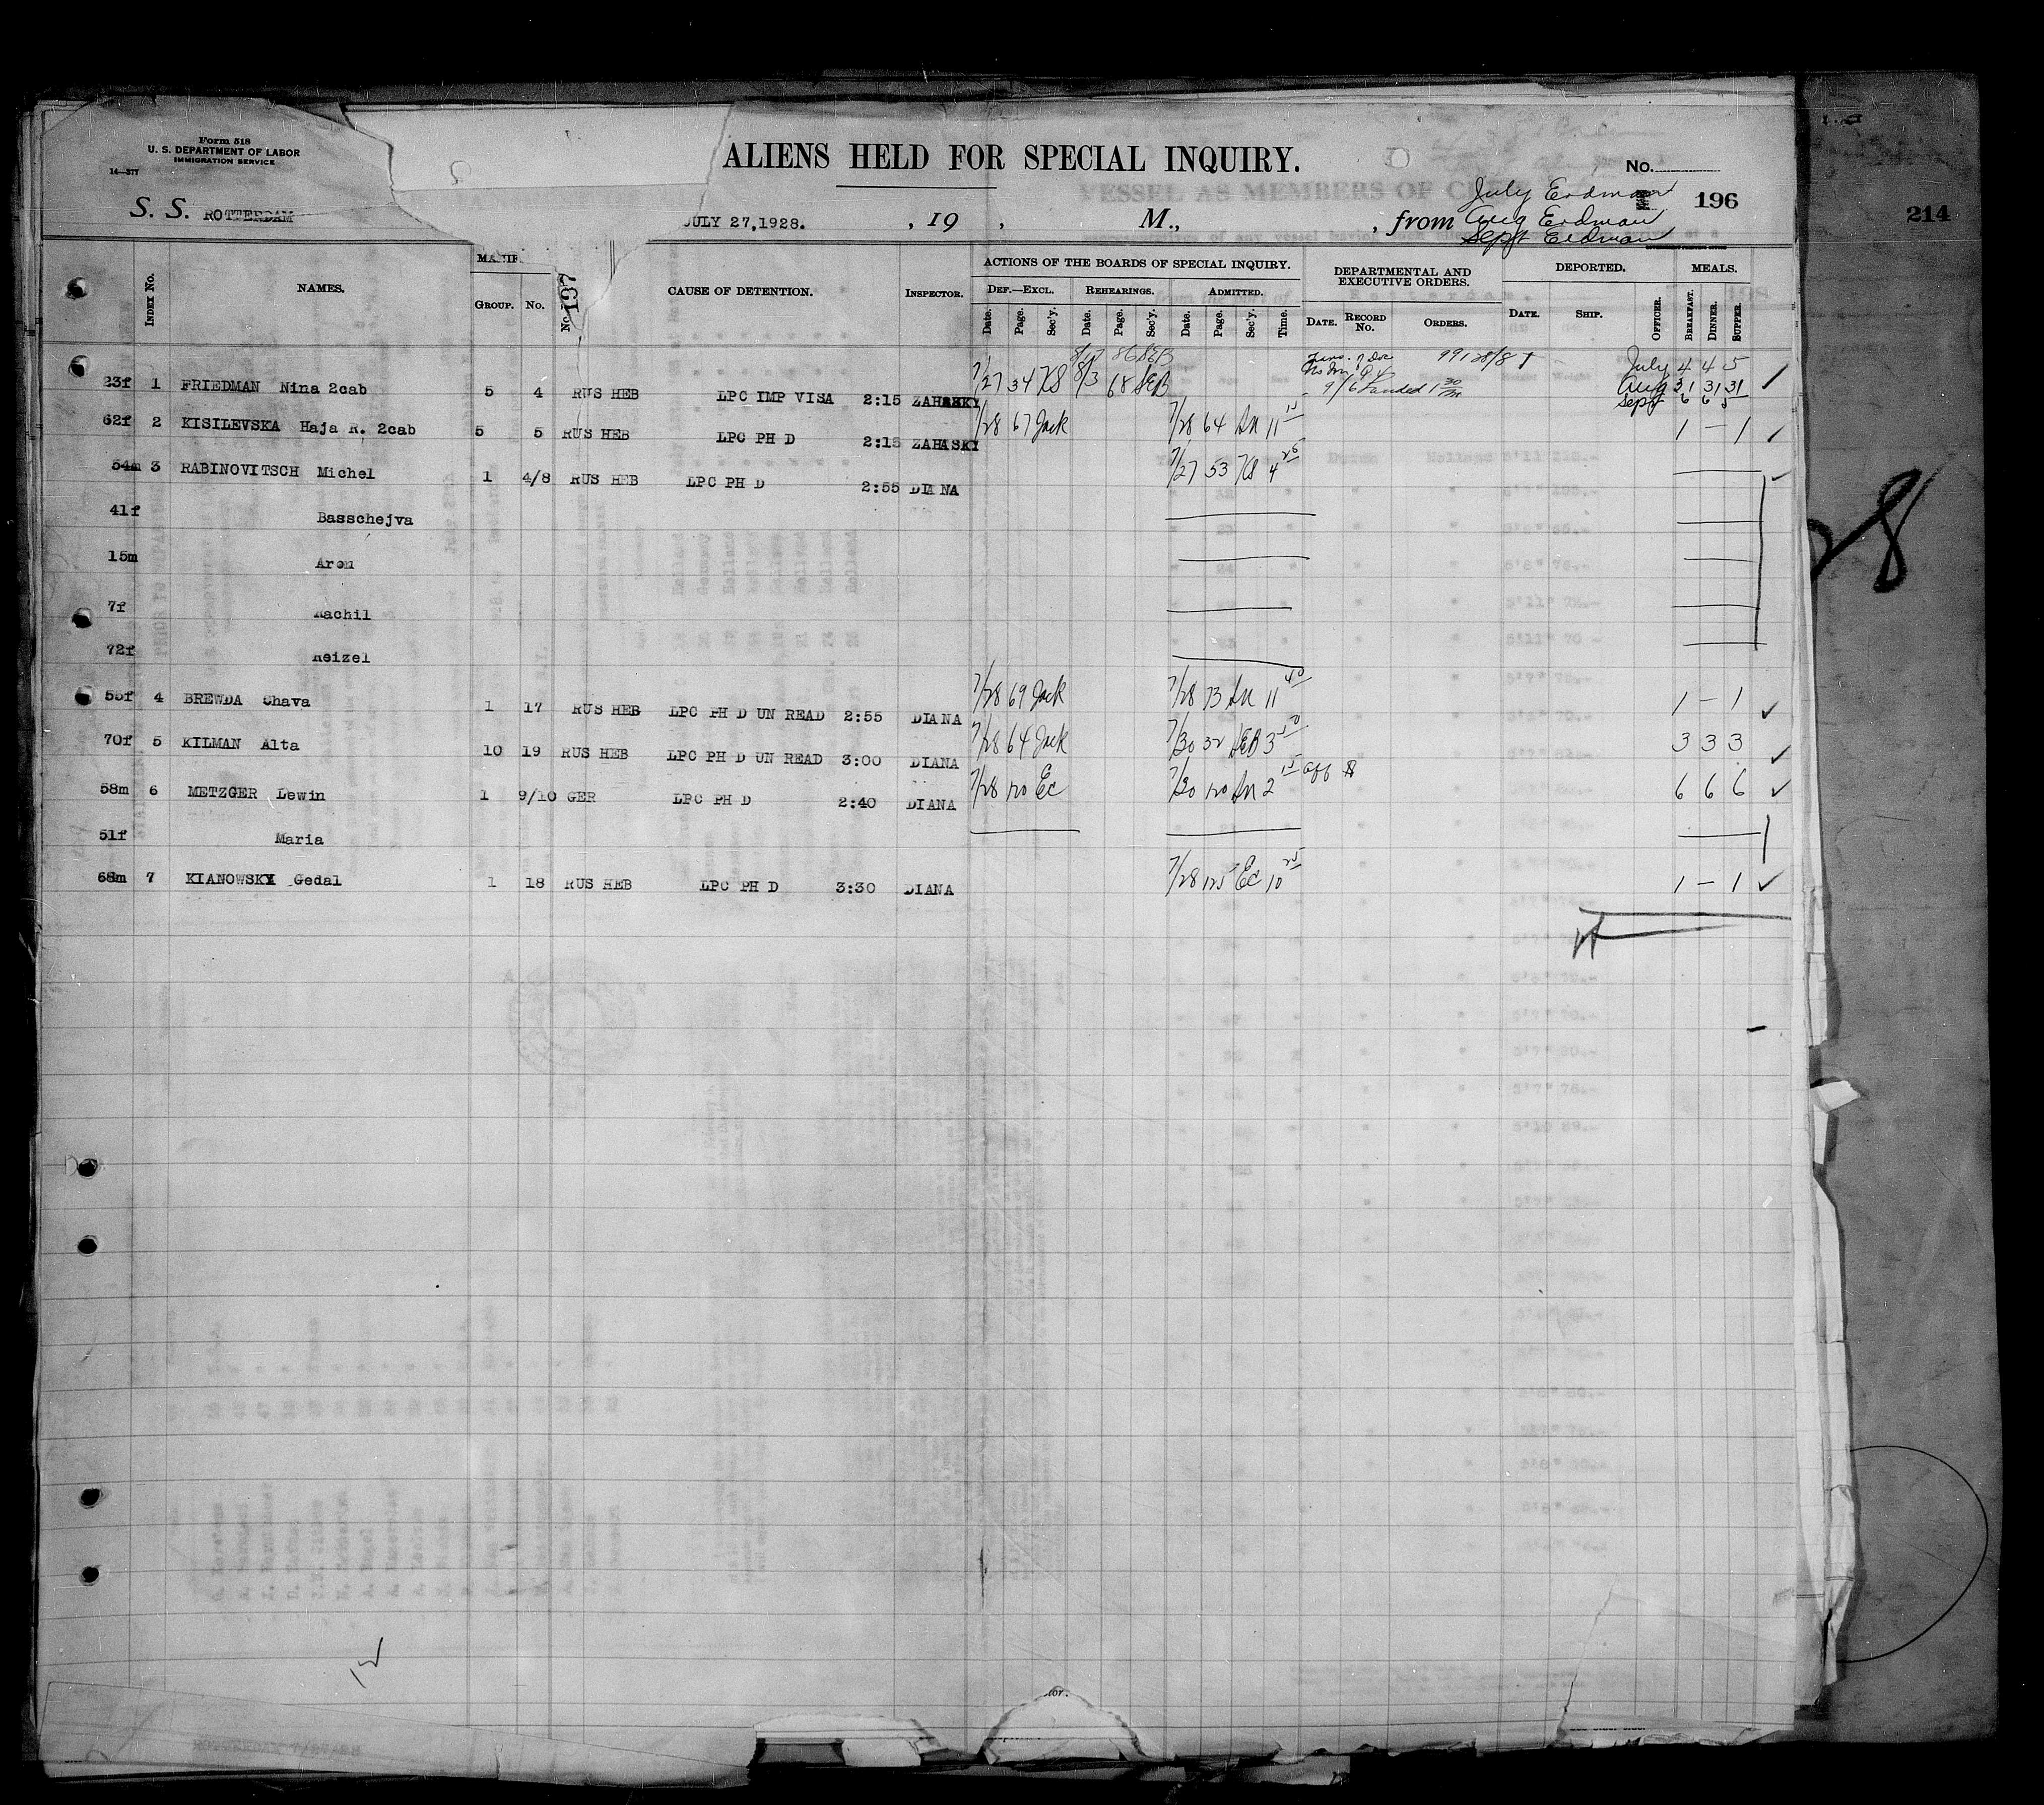 Form 518
U. S. DEPARTMENT OF LABOR
IMMIGRATION SERVICE
14—377
ALIENS HELD FOR SPECIAL INQUIRY.
No.
196
214
S. S. ROTTERDAM
JULY 27,1928. , 19 , M., , from
July Erdman
Aug Erdman
Sept Erdman
Index No. NAMES. GROUP. No. 197 CAUSE OF DETENTION. INSPECTOR.
ACTIONS OF THE BOARDS OF SPECIAL INQUIRY. DEPARTMENTAL AND EXECUTIVE ORDERS. DEPORTED. MEALS.
DEF.—EXCL. REHEARINGS. ADMITTED.
Date. Page. Sec'y. Date. Page. Sec'y. Date. Page. Sec'y. Time. DATE. RECORD No. ORDERS. DATE. SHIP. OFFICER. BREAKFAST. DINNER. SUPPER.
8/17 86 SEB 99128/8 July 4 4 5
23f 1 FRIEDMAN Nina 2cab 5 4 RUS HEB LPC IMP VISA 2:15 ZAHASKY 7/27 34 KS 8/3 68 SEB 9/6 Landed 1 30 Aug 31 31 31
Sept 6 6 5
62f 2 KISILEVSKA Haja R. 2cab 5 5 RUS HEB LPC PH D 2:15 ZAHASKY 7/28 67 Jack 7/28 64 11 15 1 — 1
54m 3 RABINOVITSCH Michel 1 4/8 RUS HEB LPC PH D 2:55 DIANA 7/27 53 KS 4 25
41f Basschejva
15m Aron
7f Rachil
72f Reizel
55f 4 BREWDA Chava 1 17 RUS HEB LPC PH D UN READ 2:55 DIANA 7/28 69 Jack 7/28 73 11 40 1 — 1
70f 5 KILMAN Alta 10 19 RUS HEB LPC PH D UN READ 3:00 DIANA 7/28 64 Jack 7/30 32 SEB 3 3 3 3
58m 6 METZGER Lewin 1 9/10 GER LPC PH D 2:40 DIANA 7/28 120 EC 7/30 120 2 15 6 6 6
51f Maria
68m 7 KIANOWSKY Gedal 1 18 RUS HEB LPC PH D 3:30 DIANA 7/28 125 EC 10 25 1 — 1
12
28